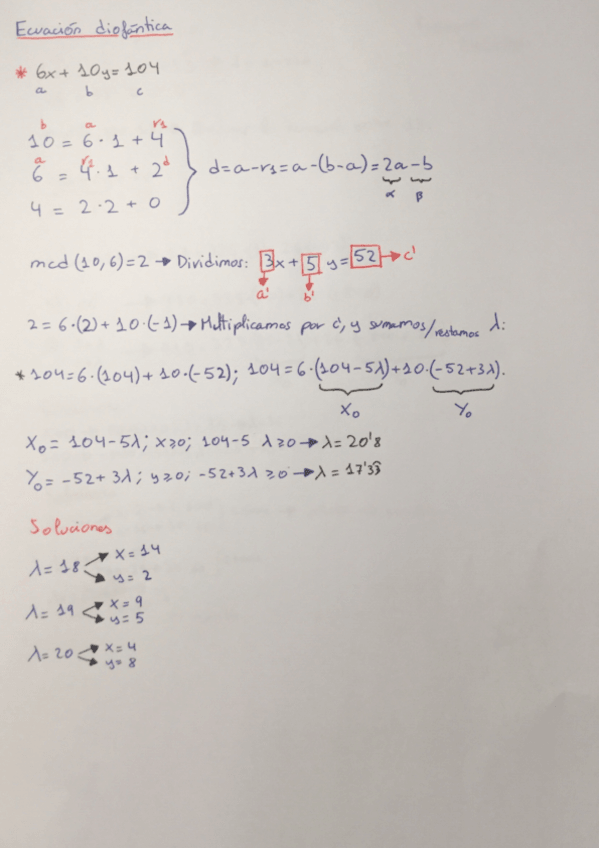 Ecuación diofántica
* 6x + 10y = 104
a b c
b a r1
10 = 6 · 1 + 4
a r1 d
6 = 4 · 1 + 2
4 = 2 · 2 + 0
d = a - r1 = a - (b - a) = 2a - b
α β
mcd (10, 6) = 2 → Dividimos: 3x + 5 y = 52 → c'
a' b'
2 = 6 · (2) + 10 · (-1) → Multiplicamos por c', y sumamos/restamos λ:
* 104 = 6 · (104) + 10 · (-52); 104 = 6 · (104 - 5λ) + 10 · (-52 + 3λ).
X₀ Y₀
X₀ = 104 - 5λ; x ≥ 0; 104 - 5 λ ≥ 0 → λ = 20'8
Y₀ = -52 + 3λ; y ≥ 0; -52 + 3λ ≥ 0 → λ = 17'33
Soluciones
λ = 18 x = 14
y = 2
λ = 19 x = 9
y = 5
λ = 20 x = 4
y = 8